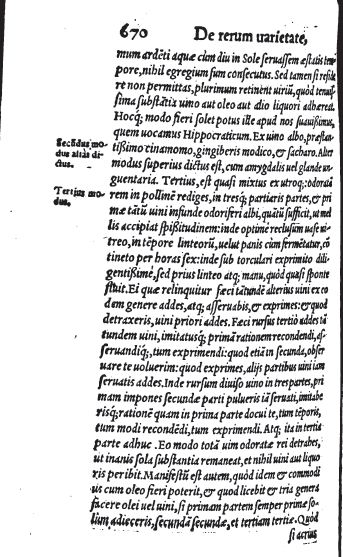 670 De rerum uarietate,
mum ardẽti aquæ cùm diu in Sole seruassem æstatis tem
pore, nihil egregium sum consecutus. Sed tamen si reside
re non permittas, plurimum retinent uiriũ, quòd tenuis
sima substãtia uino aut oleo aut alio liquori adhæreat.
Hocq́; modo fieri solet potus ille apud nos suauißimus,
quem uocamus Hippocraticum. Ex uino albo, præstan
tißimo cinamomo, gingiberis modico, & sacharo. Alter
Secũdus mo
dus aliàs di
ctus.
modus superius dictus est, cum amygdalis uel glande un
guentaria. Tertius, est quasi mixtus ex utroq;: odoratã
Tertius mo-
dus.
rem in pollinẽ rediges, in tresq́; partiaris partes, & pri
mæ tãtũ uini infunde odoriferi albi, quãtũ sufficit, ut mel
lis accipiat spißitudinem: inde optimè reclusum uase ui-
treo, in tẽpore linteorũ, uelut panis cùm fermẽtatur, cõ
tineto per horas sex: inde sub torculari exprimito dili-
gentißimè, sed prius linteo atq; manu, quòd quasi sponte
fluit. Ei quæ relinquitur fæci tãtundẽ alterius uini ex eo
dem genere addes, atq; asseruabis, & exprimes: & quod
detraxeris, uini priori addes. Fæci rursus tertiò addes tã
tundem uini, imitatusq́; primã rationem recondendi, as-
seruandiq́;, tum exprimendi: quod etiã in secunda, obser
uare te uoluerim: quod exprimes, alijs partibus uini iam
seruatis addes. Inde rursum diuiso uino in tres partes, pri
mam impones secundæ parti pulueris iã seruati, imitabe
risq́; rationẽ quam in prima parte docui te, tum tẽporis,
tum modi recondẽdi, tum exprimendi. Atq; ita in tertia
parte adhuc. Eo modo totã uim odoratæ rei detrahes,
ut inanis sola substantia remaneat, et nihil uini aut liquo
ris peribit. Manifestũ est autem, quòd idem & commodi
us cum oleo fieri poterit, & quod licebit & tria genera
facere olei uel uini, si primam partem semper primæ so-
lùm adieceris, secundã secundæ, et tertiam tertiæ. Quòd
si acrius